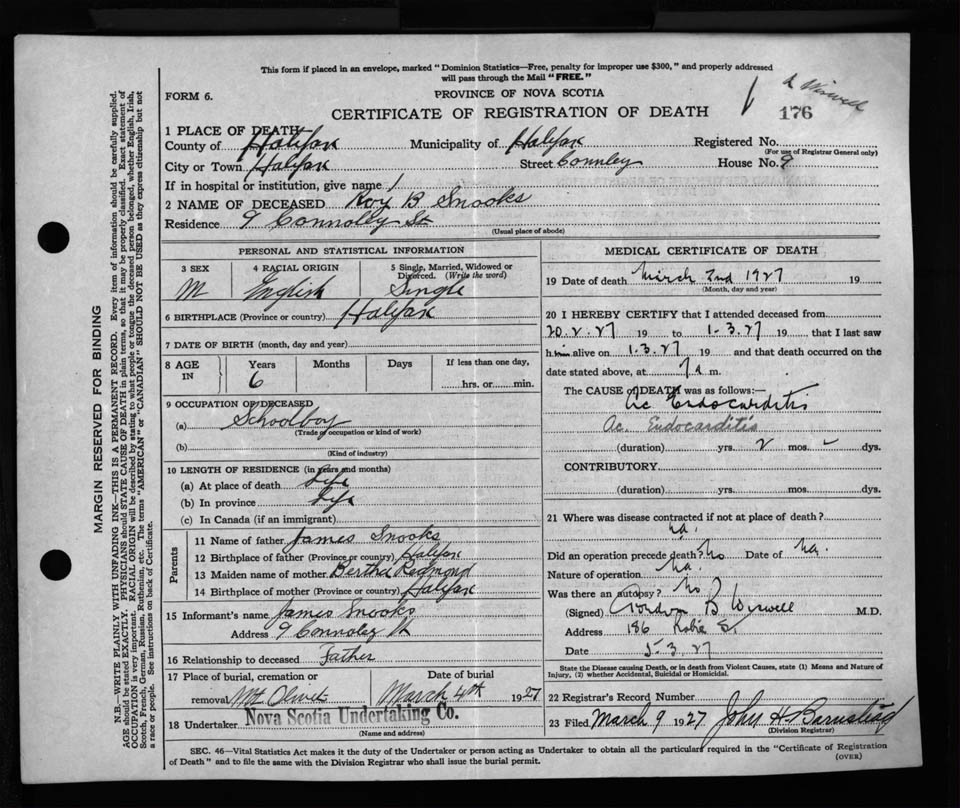 This form if placed in an envelope, marked "Dominion Statistics—Free, penalty for improper use $300," and properly addressed
will pass through the Mail "FREE."
FORM 6.
PROVINCE OF NOVA SCOTIA
CERTIFICATE OF REGISTRATION OF DEATH
176
1 PLACE OF DEATH
County of Halifax Municipality of Halifax Registered No.
(For use of Registrar General only)
City or Town Halifax Street Connley House No. 9
If in hospital or institution, give name /
2 NAME OF DECEASED Roy B Snooks
Residence 9 Connolley St
(Usual place of abode)
PERSONAL AND STATISTICAL INFORMATION
3 SEX
M
4 RACIAL ORIGIN
English
5 Single, Married, Widowed or
Divorced. (Write the word)
Single
6 BIRTHPLACE (Province or country) Halifax
7 DATE OF BIRTH (month, day and year)
8 AGE
IN
Years
6
Months
Days
If less than one day,
hrs. or min.
9 OCCUPATION OF DECEASED
(a) Schoolboy
(Trade, occupation or kind of work)
(b)
(Kind of industry)
10 LENGTH OF RESIDENCE (in years and months)
(a) At place of death Life
(b) In province Life
(c) In Canada (if an immigrant)
Parents
11 Name of father James Snooks
12 Birthplace of father (Province or country) Halifax
13 Maiden name of mother Bertha Redmond
14 Birthplace of mother (Province or country) Halifax
15 Informant's name James Snooks
Address 9 Connoley St
16 Relationship to deceased Father
17 Place of burial, cremation or
removal Mt Olivet
Date of burial
March 4th 1927
18 Undertaker Nova Scotia Undertaking Co.
(Name and address)
MEDICAL CERTIFICATE OF DEATH
19 Date of death March 2nd 1927 19
(Month, day and year)
20 I HEREBY CERTIFY that I attended deceased from
20.2.27 19 to 1-3.27 19 that I last saw
him alive on 1.3.27 19 and that death occurred on the
date stated above, at 7 a m.
The CAUSE OF DEATH was as follows:—
Ac Endocarditis
Ac. Endocarditis
(duration) yrs. 2 mos. – dys.
CONTRIBUTORY
(duration) yrs. mos. dys.
21 Where was disease contracted if not at place of death?
na.
Did an operation precede death? no Date of na.
Nature of operation na.
Was there an autopsy? no
(Signed) Gordon B Wiswell M.D.
Address 186 Robie St.
Date 5-3.27
State the Disease causing Death, or in death from Violent Causes, state (1) Means and Nature of
Injury, (2) whether Accidental, Suicidal or Homicidal.
22 Registrar's Record Number
23 Filed March 9 1927 John H Barnstead
(Division Registrar)
SEC. 46—Vital Statistics Act makes it the duty of the Undertaker or person acting as Undertaker to obtain all the particulars required in the "Certificate of Registration
of Death" and to file the same with the Division Registrar who shall issue the burial permit.
(OVER)
MARGIN RESERVED FOR BINDING
N.B.—WRITE PLAINLY WITH UNFADING INK—THIS IS A PERMANENT RECORD. Every item of information should be carefully supplied.
AGE should be stated EXACTLY. PHYSICIANS should STATE CAUSE OF DEATH in plain terms, so that it may be properly classified. Exact statement of
OCCUPATION is very important. RACIAL ORIGIN will be described by stating to what people or tongue the deceased person belonged, whether English, Irish,
Scotch, French, German, Russian, Ruthenian, etc. The terms "AMERICAN" or "CANADIAN" SHOULD NOT BE USED as they express citizenship but not
a race or people. See instructions on back of Certificate.